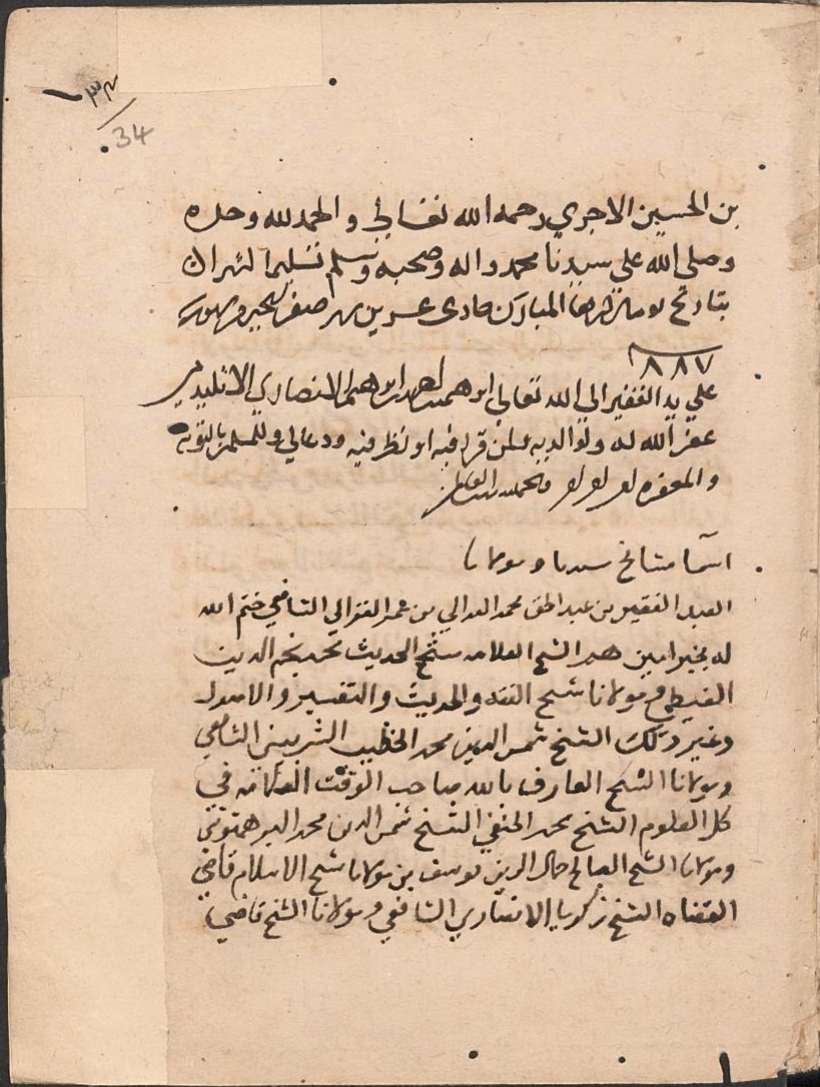 ٣٤
34
بن الحسين الاجري رحمه الله تعالى و الحمد لله وحده
وصلى الله على سيدنا محمد واله وصحبه وسلم تسليما
بتاريخ المبارك حادى عشرين صفر الخير
٨٨٧
على يد الفقير الى الله تعالى ابرهيم ابرهيم الانصاري
غفر الله له ولوالديه ولمن قرا فيه او نظر فيه ودعا لي وللمسلمين بالتوبه
والمغفره
اسما مشائخ سيدنا و مولانا
العبد الفقير بن عبد الحق محمد بن عمر الشافعي ختم الله
له بخير امين هم الشيخ العلامه شيخ الحديث نجم الدين
الغيطي و مولانا شيخ الفقه والحديث والتفسير والاصول
وغير ذلك الشيخ شمس الدين محمد الخطيب الشربيني الشافعي
ومولانا الشيخ العارف بالله صاحب الوقت العلامه في
كل العلوم الشيخ محمد الحنفي الشيخ شمس الدين محمد البرهمتوشي
ومولانا الشيخ الصالح جمال الدين يوسف بن مولانا شيخ الاسلام قاضي
القضاه الشيخ زكريا الانصاري الشافعي و مولانا الشيخ قاضي